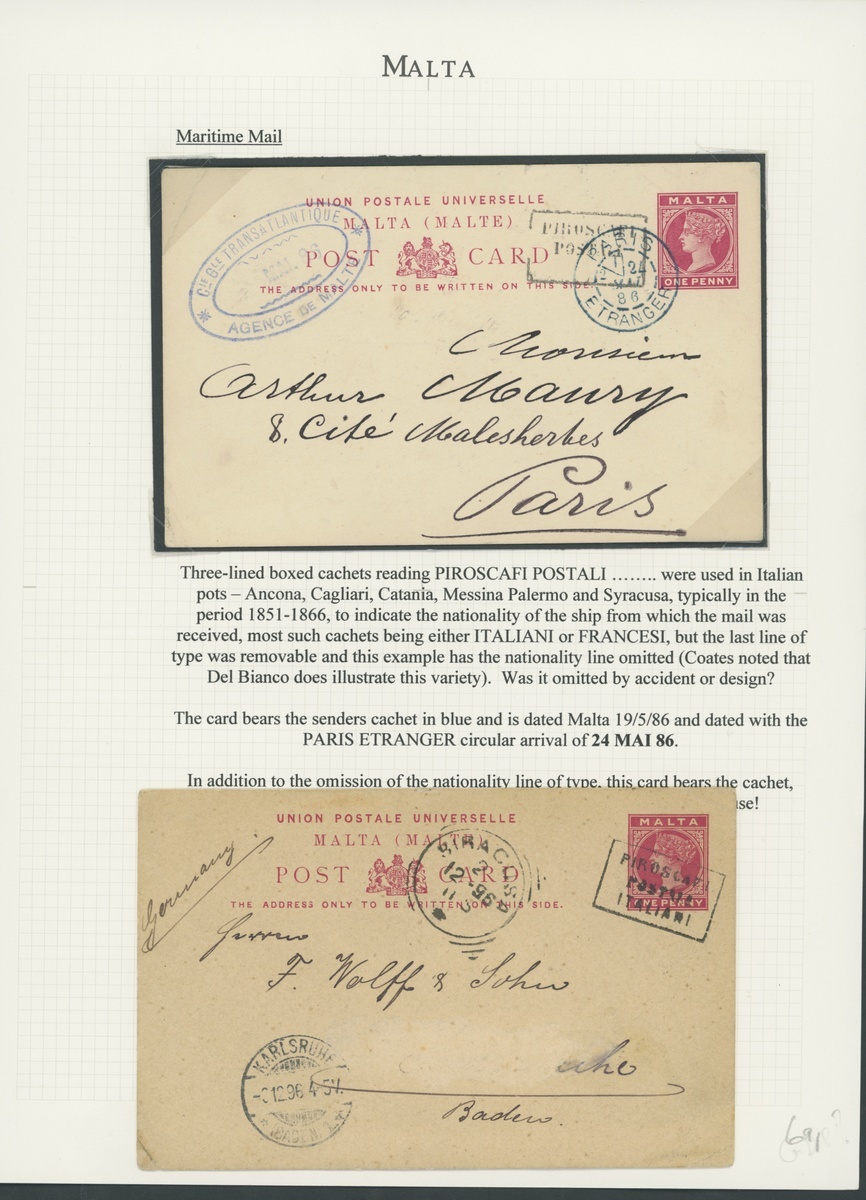 MALTA
Maritime Mail
UNION POSTALE UNIVERSELLE
MALTA (MALTE)
POST CARD
THE ADDRESS ONLY TO BE WRITTEN ON THIS SIDE.
MALTA
ONE PENNY
CIE GLE TRANSATLANTIQUE
MAI 86
AGENCE DE MALTE
PIROSCAFI
POSTALI
PARIS
24
86
ETRANGER
Monsieur
Arthur Maury
8. Cité Malesherbes
Paris
Three-lined boxed cachets reading PIROSCAFI POSTALI …….. were used in Italian
pots – Ancona, Cagliari, Catania, Messina Palermo and Syracusa, typically in the
period 1851-1866, to indicate the nationality of the ship from which the mail was
received, most such cachets being either ITALIANI or FRANCESI, but the last line of
type was removable and this example has the nationality line omitted (Coates noted that
Del Bianco does illustrate this variety).  Was it omitted by accident or design?
The card bears the senders cachet in blue and is dated Malta 19/5/86 and dated with the
PARIS ETRANGER circular arrival of 24 MAI 86.
In addition to the omission of the nationality line of type, this card bears the cachet,
use!
UNION POSTALE UNIVERSELLE
MALTA (MALTE)
POST CARD
THE ADDRESS ONLY TO BE WRITTEN ON THIS SIDE.
MALTA
ONE PENNY
SIRACUSA
12-96
PIROSCAFI
POSTALI
ITALIANI
Germany
Herren
F. Wolff & Sohn
uhe
Baden.
KARLSRUHE
12.96 4-5V.
BADEN